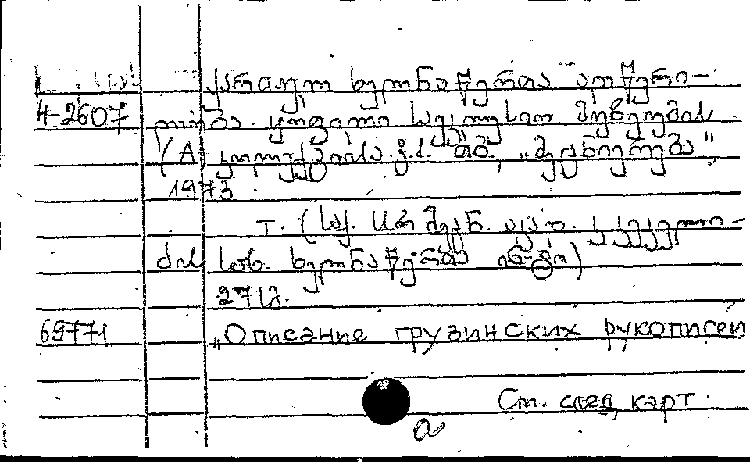 ქართულ ხელნაწერთა აღწერი-
4-2607 ლობა ყოფილი საეკლესიო მუზეუმის
(A) კოლექციისა. თბ., „მეცნიერება",
1973.
т. (საქ. სსრ მეცნ. აკად. კ. კეკელი-
ძის სახ. ხელნაწერთა ინ-ტი)
271გ.
69771 „Описание грузинских рукописей
См. след. карт.
a